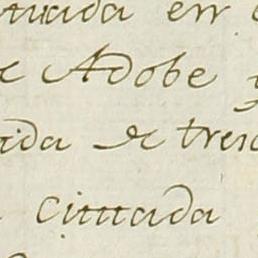 tuada en
de Adobe y
ida de tres
Cituada